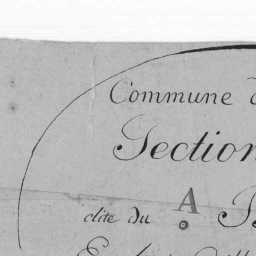 Commune d
Section
dite du A B